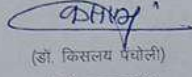 (डॉ. किसलय पंचोली)